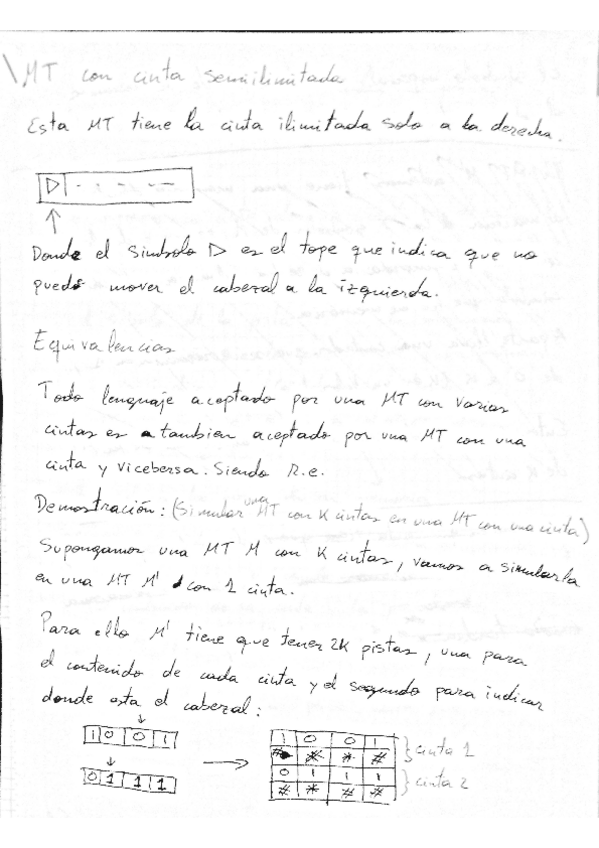 MT con cinta semiilimitada
Esta MT tiene la cinta ilimitada solo a la derecha.
▷ - - - - -
↑
Donde el simbolo ▷ es el tope que indica que no
puedo mover el cabezal a la izquierda.
Equivalencias
Todo lenguaje aceptado por una MT con varias
cintas es tambien aceptado por una MT con una
cinta y vicebersa. Siendo R.e.
Demostración: (Simular una MT con K cintas en una MT con una cinta)
Supongamos una MT M con K cintas, vamos a simularla
en una MT M' con 1 cinta.
Para ello M' tiene que tener 2K pistas, una para
el contenido de cada cinta y el segundo para indicar
donde esta el cabezal:
↓
1 0 0 1
↓
0 1 1 1
→
1 0 0 1
# # * # } cinta 1
0 1 1 1
# * # # } cinta 2